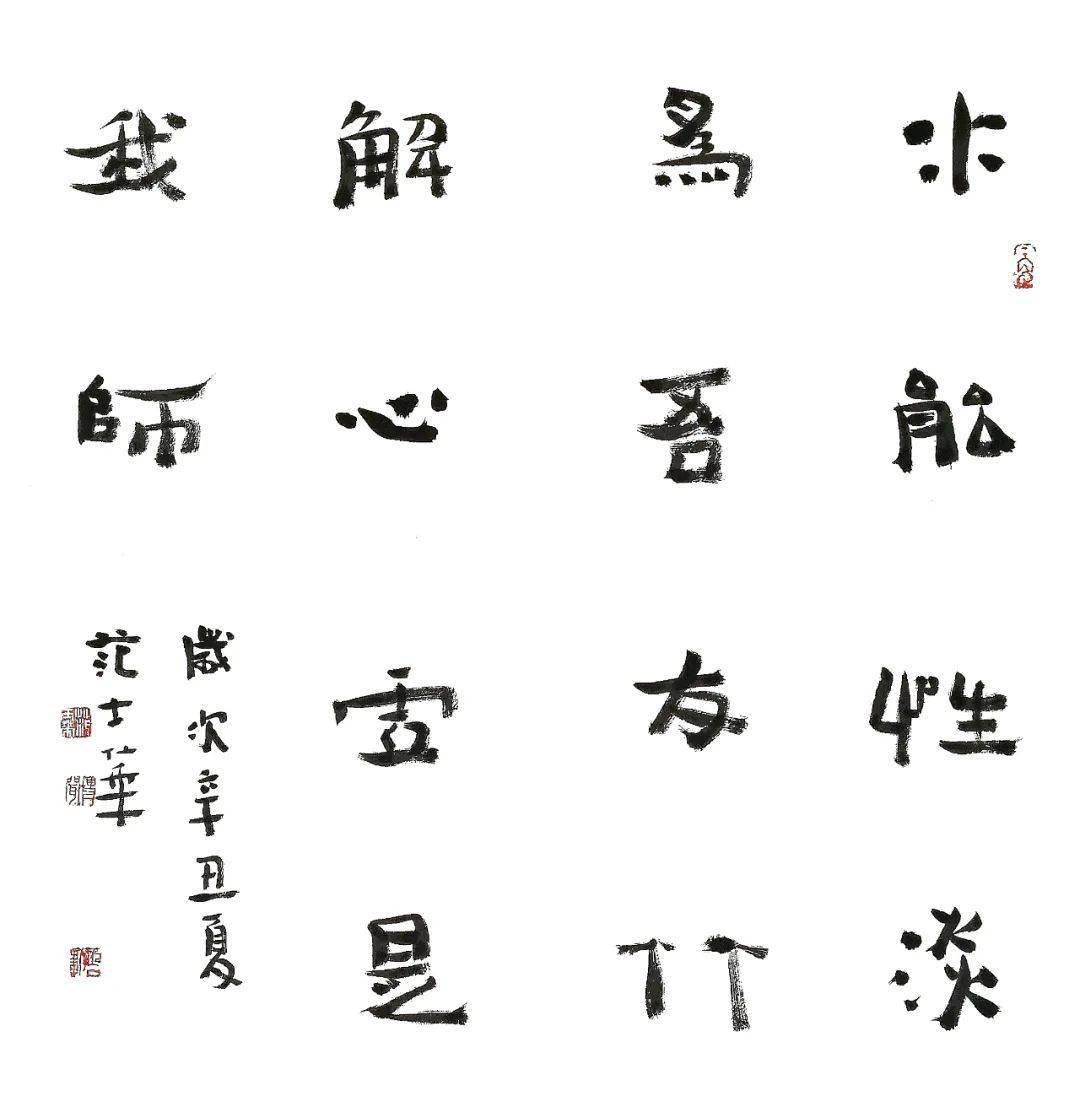 水能性淡
為吾友竹
解心虛是
我師
歲次辛丑夏
范士華